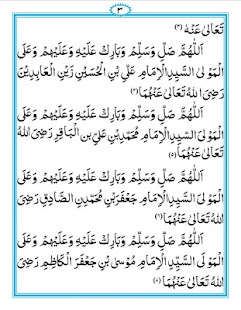 ٣
تَعَالىٰ عَنْهُ (٣)
اَللّٰهُمَّ صَلِّ وَسَلِّمْ وَبَارِكْ عَلَيْهِ وَعَلَيْهِمْ وَعَلَى
الْمَوْلَى السَّيِّدِ الْاِمَامِ عَلِيِّ بْنِ الْحُسَيْنِ زَيْنِ الْعَابِدِيْنَ
رَضِىَ اللهُ تَعَالىٰ عَنْهُمَا
اَللّٰهُمَّ صَلِّ وَسَلِّمْ وَبَارِكْ عَلَيْهِ وَعَلَيْهِمْ وَعَلَى
الْمَوْلَى السَّيِّدِ الْاِمَامِ مُحَمَّدِ بْنِ عَلِيِّ نِ الْبَاقِرِ رَضِىَ اللهُ
تَعَالىٰ عَنْهُمَا (٥)
اَللّٰهُمَّ صَلِّ وَسَلِّمْ وَبَارِكْ عَلَيْهِ وَعَلَيْهِمْ وَعَلَى
الْمَوْلَى السَّيِّدِ الْاِمَامِ جَعْفَرِ بْنِ مُحَمَّدِ نِ الصَّادِقِ رَضِىَ
اللهُ تَعَالىٰ عَنْهُمَا (٦)
اَللّٰهُمَّ صَلِّ وَسَلِّمْ وَبَارِكْ عَلَيْهِ وَعَلَيْهِمْ وَعَلَى
الْمَوْلَى السَّيِّدِ الْاِمَامِ مُوْسَى بْنِ جَعْفَرَ الْكَاظِمِ رَضِىَ
اللهُ تَعَالىٰ عَنْهُمَا